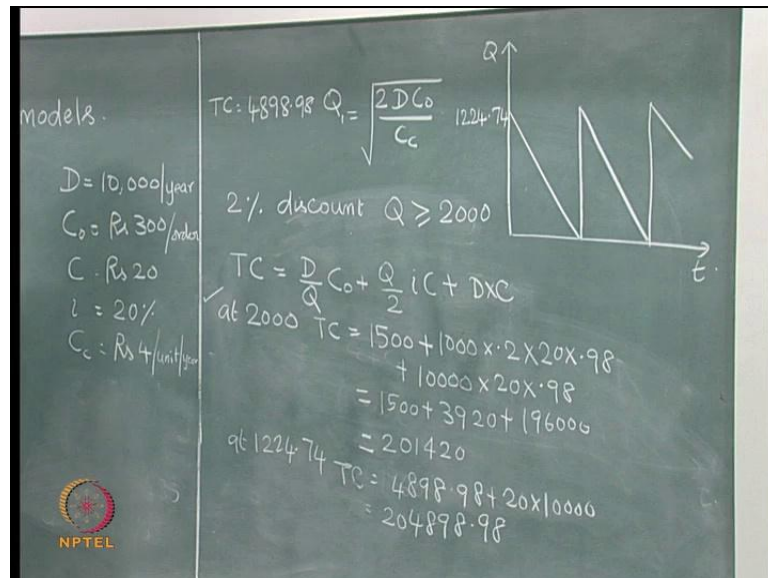 models.
D = 10,000/year
C₀ = Rs 300/order
C - Rs 20
i = 20%
Cc = Rs 4/unit/year
TC = 4898.98 Q₁ = √(2DC₀/Cc)
2% discount Q ≥ 2000
TC = D/Q C₀ + Q/2 iC + D×C
✓ at 2000 TC = 1500 + 1000 × .2 × 20 × .98
+ 10000 × 20 × .98
= 1500 + 3920 + 196000
= 201420
at 1224.74 TC = 4898.98 + 20×10000
= 204898.98
Q
1224.74
t.
NPTEL